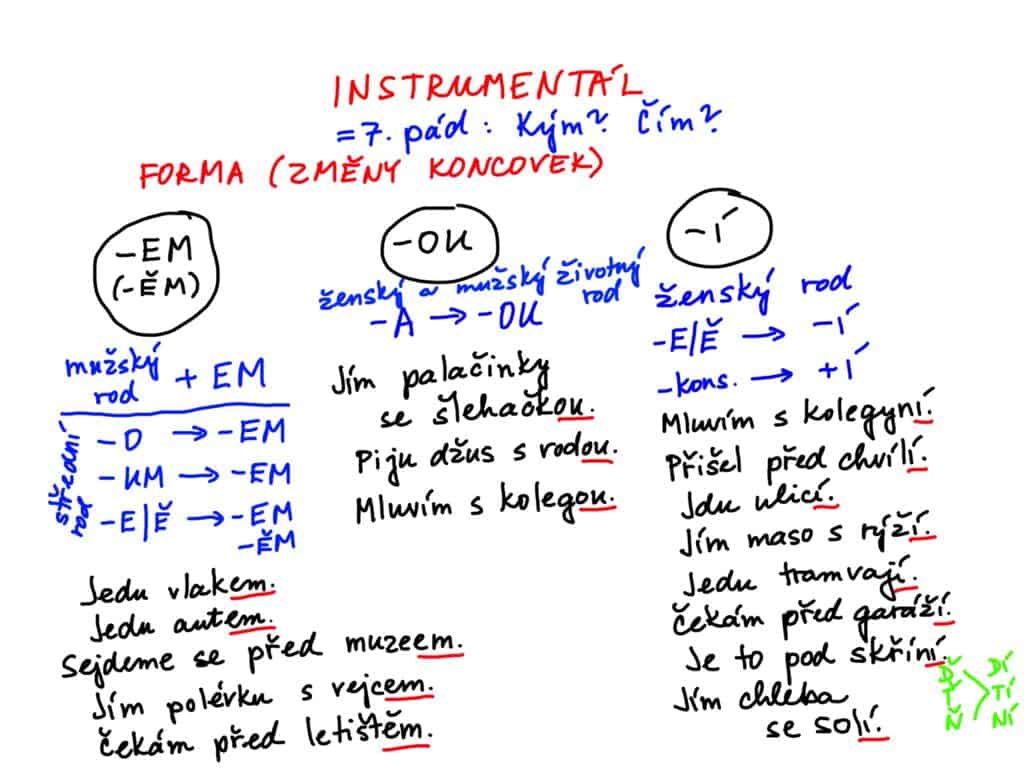 INSTRUMENTÁL
= 7. pád : Kým? Čím?
FORMA (ZMĚNY KONCOVEK)
-EM
(-ĚM)
mužský rod + EM
střední rod
-O → -EM
-UM → -EM
-E/Ě → -EM
-ĚM
Jedu vlakem.
Jedu autem.
Sejdeme se před muzeem.
Jím polévku s vejcem.
Čekám před letištěm.
-OU
ženský a mužský životný rod
-A → -OU
Jím palačinky
se šlehačkou.
Piju džus s vodou.
Mluvím s kolegou.
-Í
ženský rod
-E/Ě → -Í
-kons. → +Í
Mluvím s kolegyní.
Přišel před chvílí.
Jdu ulicí.
Jím maso s rýží.
Jedu tramvají.
Čekám před garáží.
Je to pod skříní.
Jím chleba
se solí.
Ď DÍ
Ť > TÍ
Ň NÍ